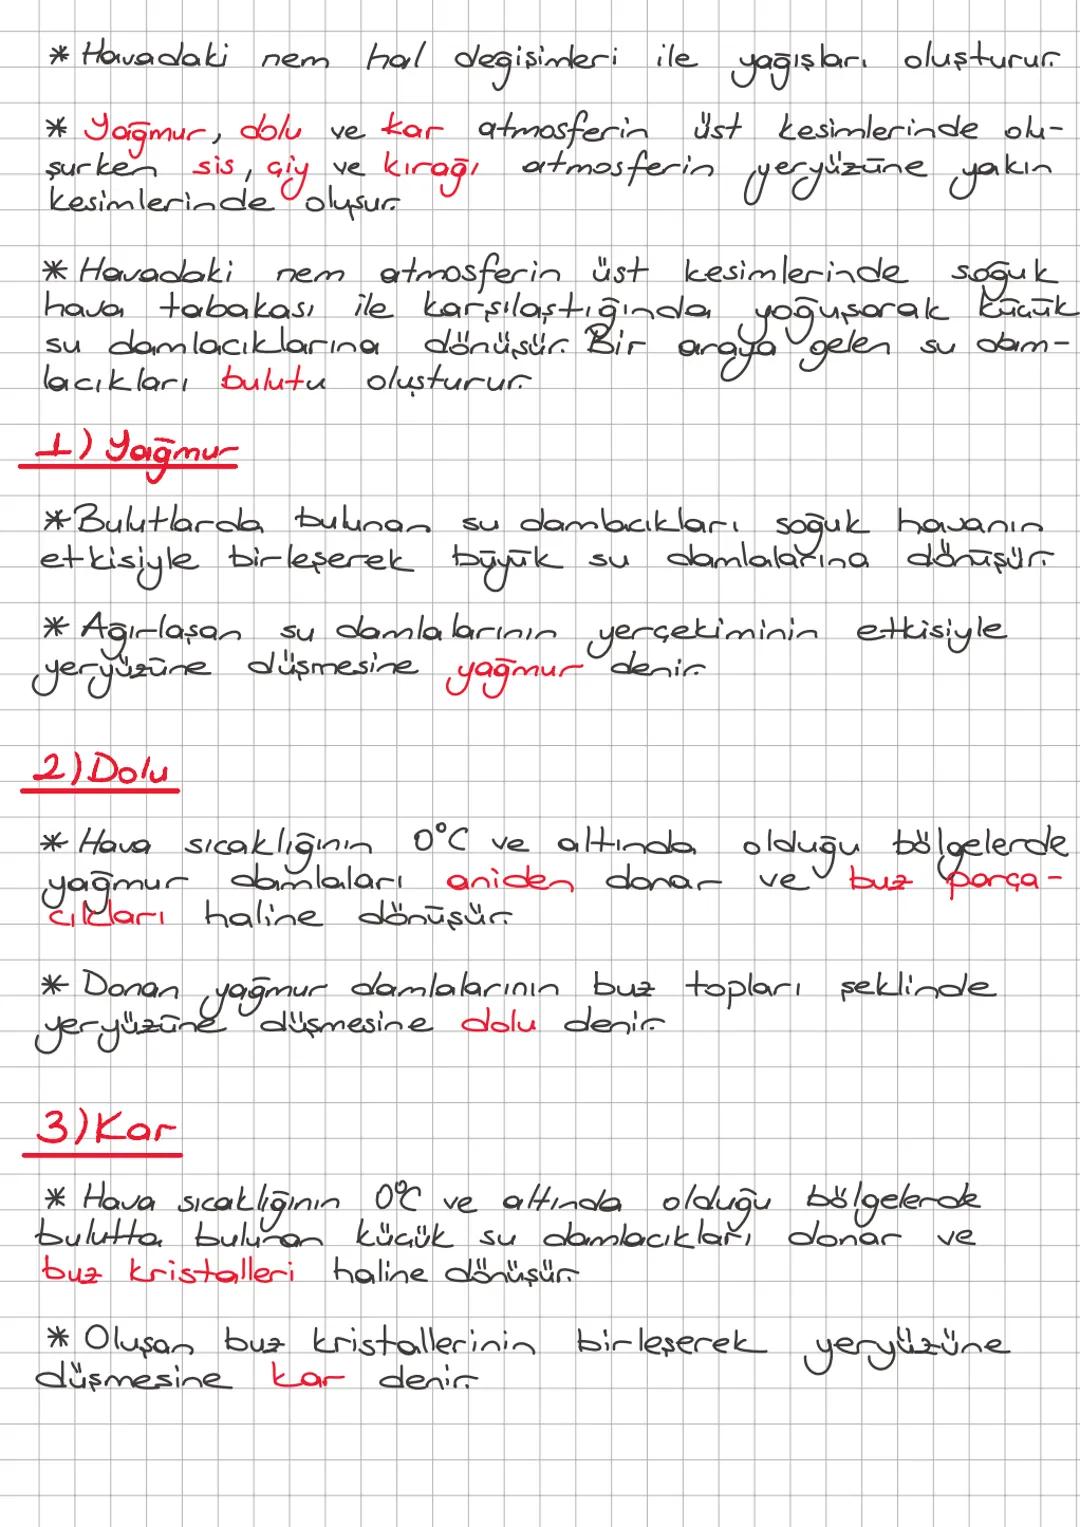 * Havadaki nem hal değişimleri ile yağışları oluşturur.
* Yağmur, dolu ve kar atmosferin üst kesimlerinde olu-
şurken sis, çiy ve kırağı atmosferin yeryüzüne yakın
kesimlerinde oluşur.
* Havadaki nem atmosferin üst kesimlerinde soğuk
hava tabakası ile karşılaştığında yoğuşarak küçük
su damlacıklarına dönüşür. Bir araya gelen su dam-
lacıkları bulutu oluşturur.
1) Yağmur
* Bulutlarda bulunan su damlacıkları soğuk havanın
etkisiyle birleşerek büyük su damlalarına dönüşür.
* Ağırlaşan su damlalarının yerçekiminin etkisiyle
yeryüzüne düşmesine yağmur denir.
2) Dolu
* Hava sıcaklığının 0°C ve altında olduğu bölgelerde
yağmur damlaları aniden donar ve buz parça-
cıkları haline dönüşür.
* Donan yağmur damlalarının buz topları şeklinde
yeryüzüne düşmesine dolu denir.
3) Kar
* Hava sıcaklığının 0°C ve altında olduğu bölgelerde
bulutta bulunan küçük su damlacıkları donar ve
buz kristalleri haline dönüşür.
* Oluşan buz kristallerinin birleşerek yeryüzüne
düşmesine kar denir.